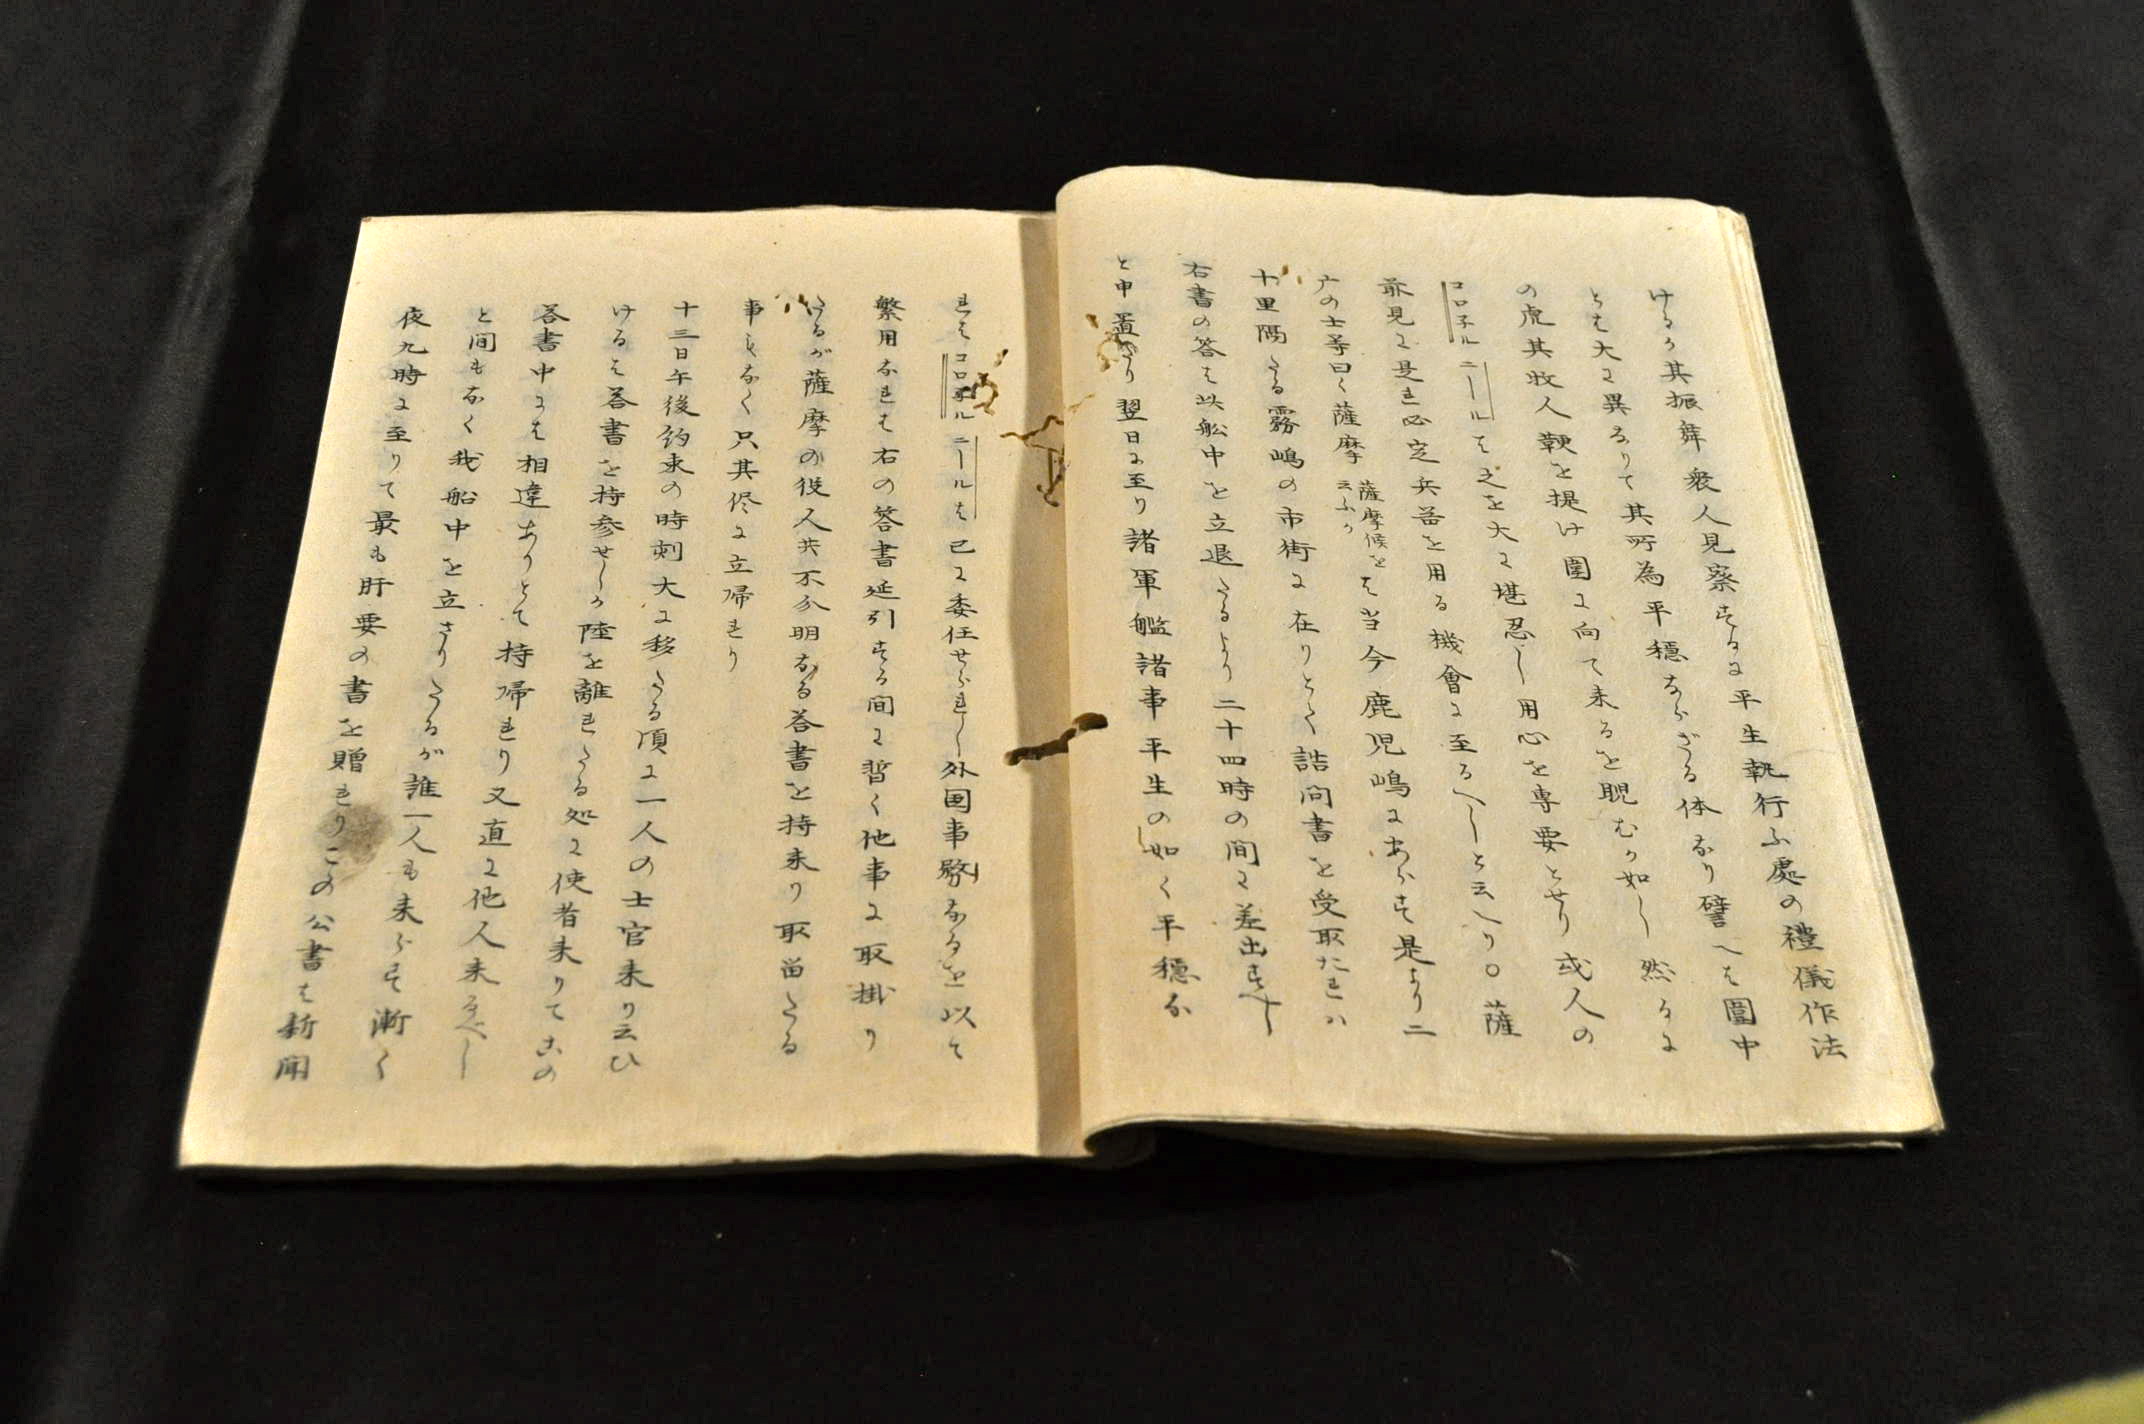 けるか其振舞衆人見察するに平生執行ふ處の禮儀作法
とは大に異なりて其所為平穏ならざる体なり譬へは圍中
の虎其牧人鞭を提け圍に向て来るを睨むか如し然るに
コロネルニールは之を大に堪忍し用心を専要とせり或人の
最見に是れ必定兵器を用る機會に至るへしと云へり〇薩
广の士等曰く薩摩薩摩候を云ふかは当今鹿児嶋にあらす是より二
十里隔たる霧嶋の市街に在りとて詰問書を受取たれハ
右書の答は此舩中を立退たるより二十四時の間に差出すへし
と申置たり翌日に至り諸軍艦諸事平生の如く平穏な
れはコロネルニールは已に委任せられし外国事務なるを以て
繁用なれは右の答書延引する間に暫く他事に取掛り
たるが薩摩の役人共不分明なる答書を持来り取留たる
事もなく只其侭に立帰れり
十三日午後約束の時刻大に移たる頃に一人の士官来り云ひ
けるは答書を持参せしか陸を離れたる処に使者来りてこの
答書中には相違ありとて持帰れり又直に他人来るべし
と間もなく我船中を立さりたるが誰一人も来らす漸く
夜九時に至りて最も肝要の書を贈れりこの公書は新聞